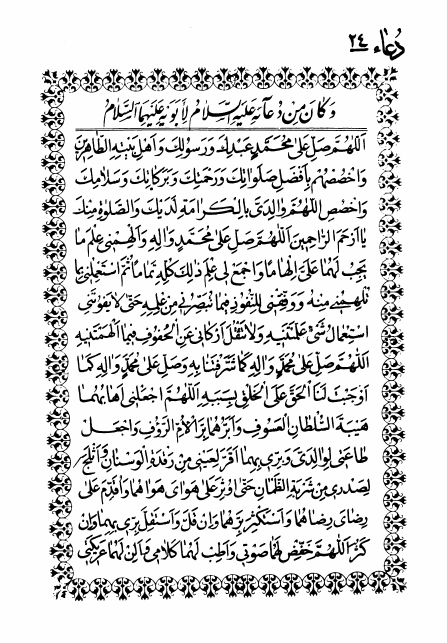 دعاء ٢٤
وكان من دعائه عليه السلام لابويه عليهما السلام
اللهم صل على محمد عبدك ورسولك واهل بيته الطاهرين
واخصصهم بافضل صلواتك ورحمتك وبركاتك وسلامك
واخصص اللهم والدى بالكرامة لديك والصلوة منك
يا ارحم الراحمين اللهم صل على محمد واله والهمنى علم ما
يجب لهما على الهاما واجمع لى علم ذلك كله تماما ثم استعملنى بما
تلهمنى منه ووفقنى للنفوذ فيما تبصرنى من علمه حتى لا يفوتنى
استعمال شئ علمتنيه ولا تثقل اركانى عن الحفوف فيما الهمتنيه
اللهم صل على محمد واله كما شرفتنا به وصل على محمد واله كما
اوجبت لنا الحق على الخلق بسببه اللهم اجعلنى اهابهما
هيبة السلطان العسوف وابرهما بر الام الرؤف واجعل
طاعتى لوالدى وبرى بهما اقر لعينى من رقدة الوسنان واثلج
لصدرى من شربة الظمان حتى اوثر على هواى هواهما واقدم على
رضاى رضاهما واستكثر برهما وان قل واستقل برى بهما وان
كثر اللهم خفض لهما صوتى واطب لهما كلامى والن لهما عريكتى